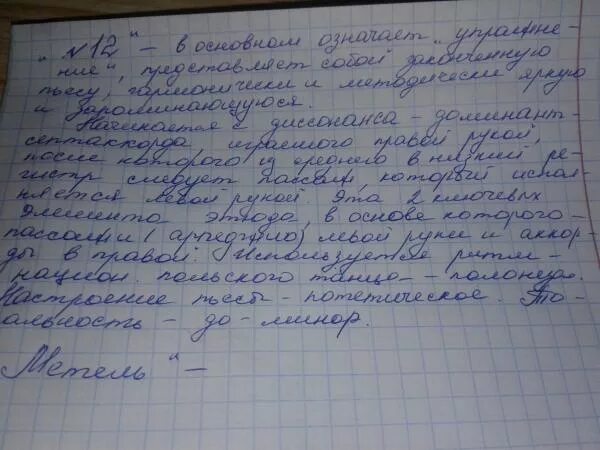 „№12“ – в основном означает „упражне-
ние“, представляет собой законченную
пьесу, гармонически и методически яркую
и запоминающуюся.
Начинается с диссонанса – доминант-
септаккорда играемого правой рукой,
после которого из среднего в нижний ре-
гистр следует пассаж, который испол-
няется левой рукой. Эта 2 ключевых
элемента этюда, в основе которого –
пассажи (арпеджио) левой руки и аккор-
ды в правой. Используется ритм –
национ. польского танца – полонеза.
Настроение пьесы – патетическое. То-
нальность – до-минор.
„Метель“ –